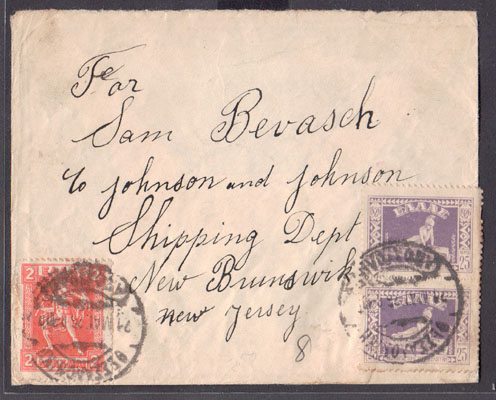 For
Sam Bevasch
c/o Johnson and Johnson
Shipping Dept
New Brunswik
New Jersey
8
2 2
2
ΕΛΛΑΣ
25
25